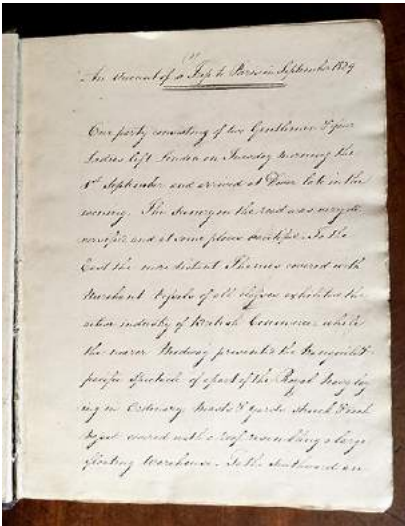 (1)
An Account of a Trip to Paris in September 1829
Our party consisting of two Gentlemen & four
Ladies left London on Tuesday morning the
1st September and arrived at Dover late in the
evening. The Scenery on the road was very di
versified and at some places beautiful. To the
East the more distant Thames covered with
Merchant Vessels of all classes exhibited the
active industry of British Commerce while
the nearer Medway presented the tranquil &
pacific Spectacle of a part of the Royal Navy lay
ing in Ordinary Masts & yards struck & each
Vessel covered with a roof resembling a large
floating Warehouse. To the Southward an